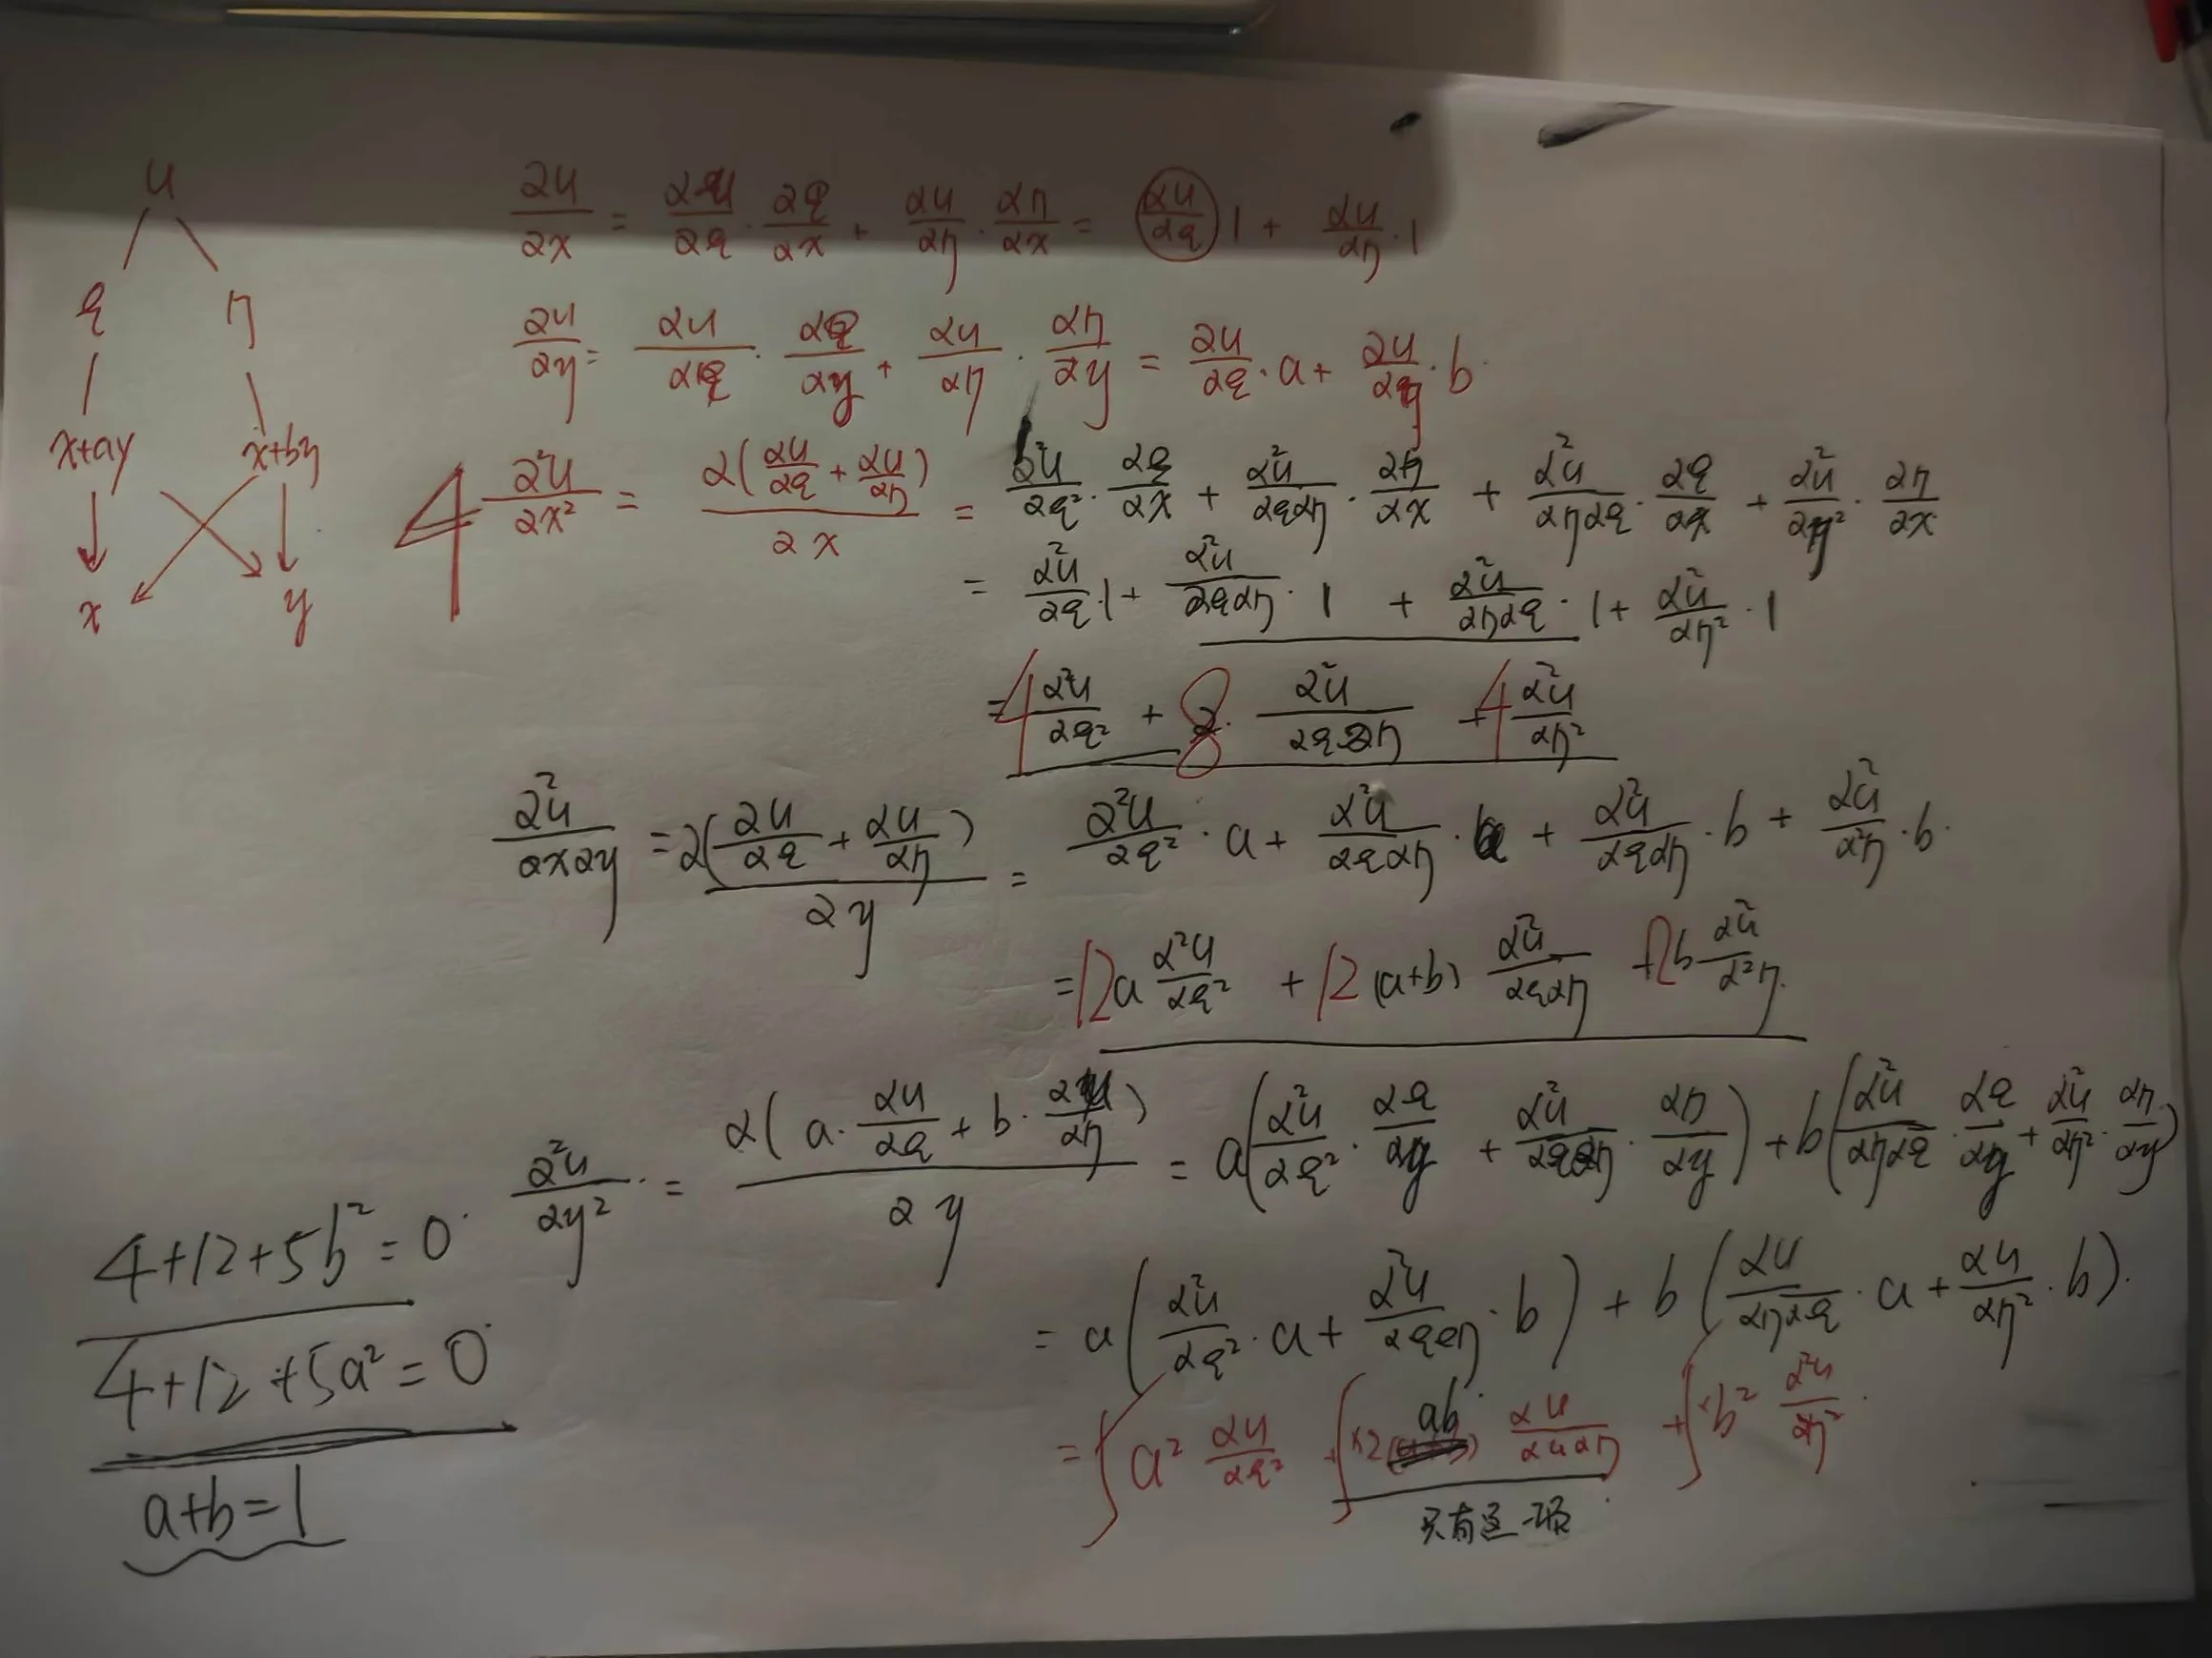 u
ξ η
x+ay x+by
x y
∂u/∂x = ∂u/∂ξ · ∂ξ/∂x + ∂u/∂η · ∂η/∂x = ∂u/∂ξ 1 + ∂u/∂η · 1
∂u/∂y = ∂u/∂ξ · ∂ξ/∂y + ∂u/∂η · ∂η/∂y = ∂u/∂ξ · a + ∂u/∂η · b
4 ∂²u/∂x² = ∂(∂u/∂ξ + ∂u/∂η)/∂x = ∂²u/∂ξ² · ∂ξ/∂x + ∂²u/∂ξ∂η · ∂η/∂x + ∂²u/∂η∂ξ · ∂ξ/∂x + ∂²u/∂η² · ∂η/∂x
= ∂²u/∂ξ · 1 + ∂²u/∂ξ∂η · 1 + ∂²u/∂η∂ξ · 1 + ∂²u/∂η² · 1
= 4 ∂²u/∂ξ² + 8 · ∂²u/∂ξ∂η + 4 ∂²u/∂η²
∂²u/∂x∂y = ∂(∂u/∂ξ + ∂u/∂η)/∂y = ∂²u/∂ξ² · a + ∂²u/∂ξ∂η · a + ∂²u/∂ξ∂η · b + ∂²u/∂²η · b
= 12 a ∂²u/∂ξ² + 12 (a+b) ∂²u/∂ξ∂η + 12 b ∂²u/∂²η
∂²u/∂y² = ∂(a · ∂u/∂ξ + b · ∂u/∂η)/∂y = a(∂²u/∂ξ² · ∂ξ/∂y + ∂²u/∂ξ∂η · ∂η/∂y) + b(∂²u/∂η∂ξ · ∂ξ/∂y + ∂²u/∂η² · ∂η/∂y)
= a(∂²u/∂ξ² · a + ∂²u/∂ξ∂η · b) + b(∂u/∂η∂ξ · a + ∂u/∂η² · b).
= 5 a² ∂u/∂ξ² + 5 ×2 ab ∂u/∂u∂η + 5 · b² ∂²u/∂η²
只有这一项
4+12+5b²=0
4+12+5a²=0
a+b=1